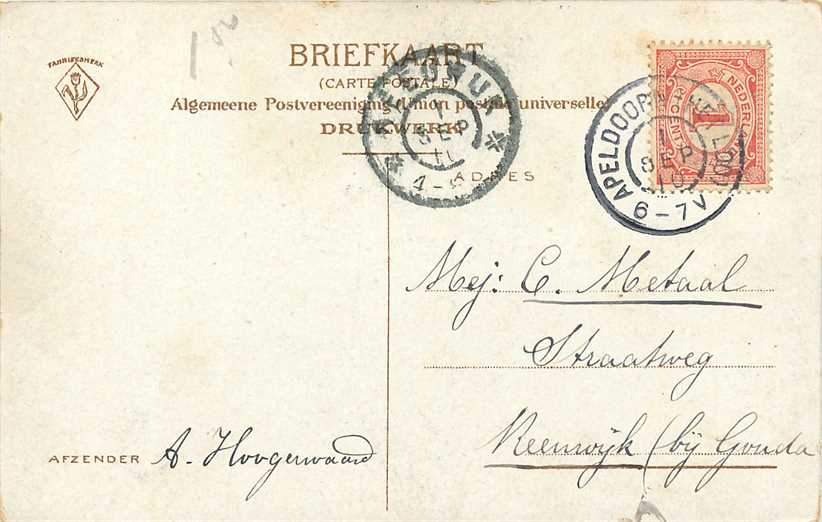 FABRIEKSMERK
BRIEFKAART
(CARTE POSTALE)
Algemeene Postvereeniging (Union postale universelle)
DRUKWERK
ADRES
1
SEP
4-8
APELDOORN HET LOO
1
SEP
10
6-7V
NEDERLAND
1
CENT
Mej: C. Metaal
Straatweg
Reeuwijk (bij Gouda
AFZENDER A. Hoogerwaard